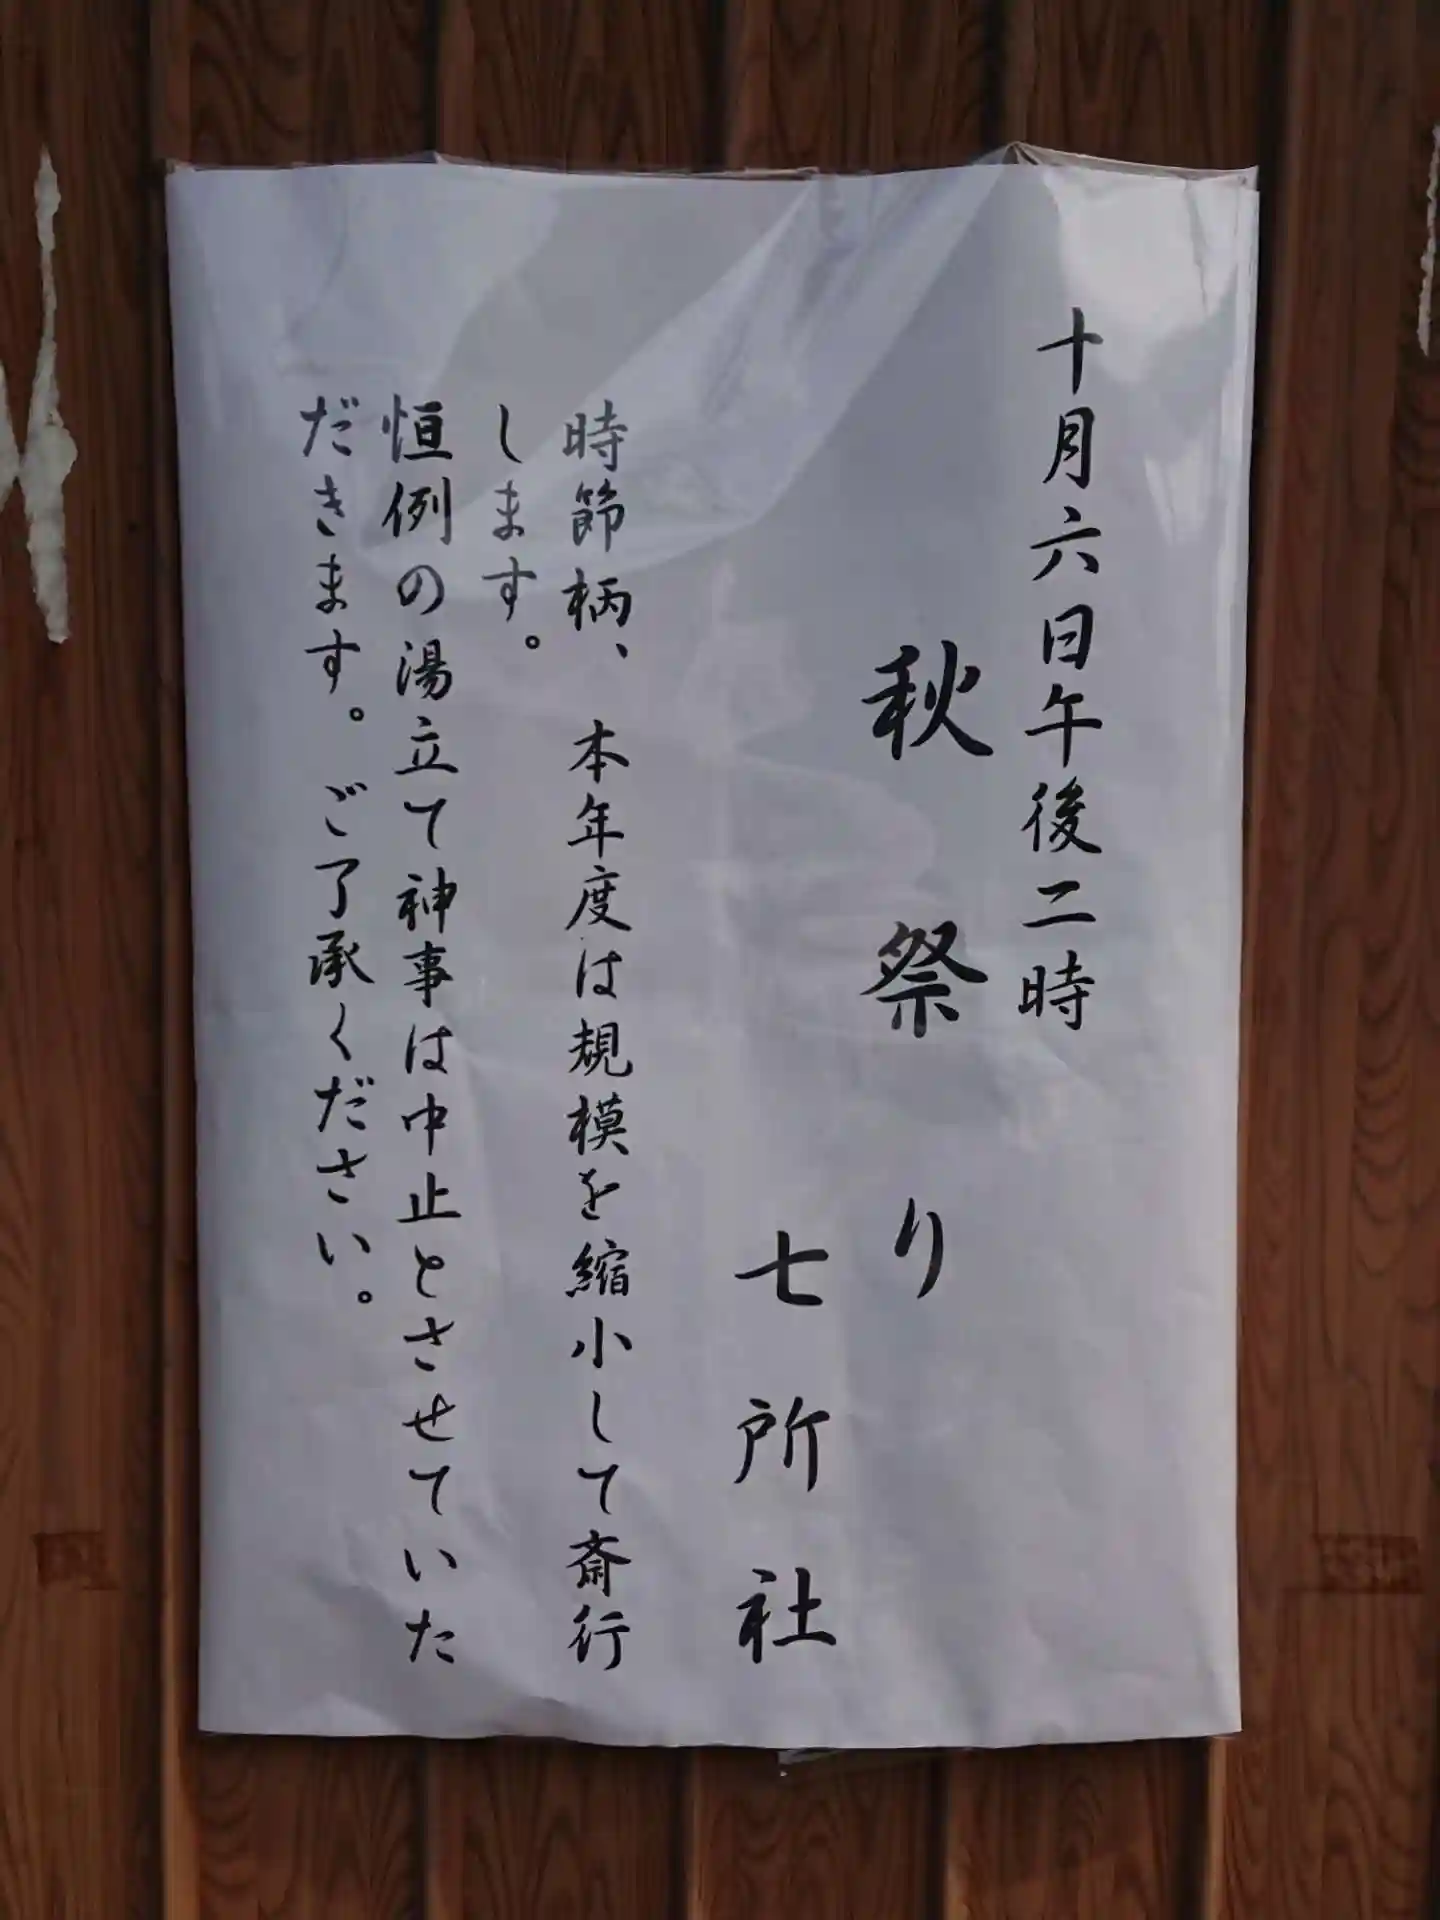 十月六日午後二時
秋祭り
七所社
時節柄、本年度は規模を縮小して斎行
します。
恒例の湯立て神事は中止とさせていた
だきます。ご了承ください。